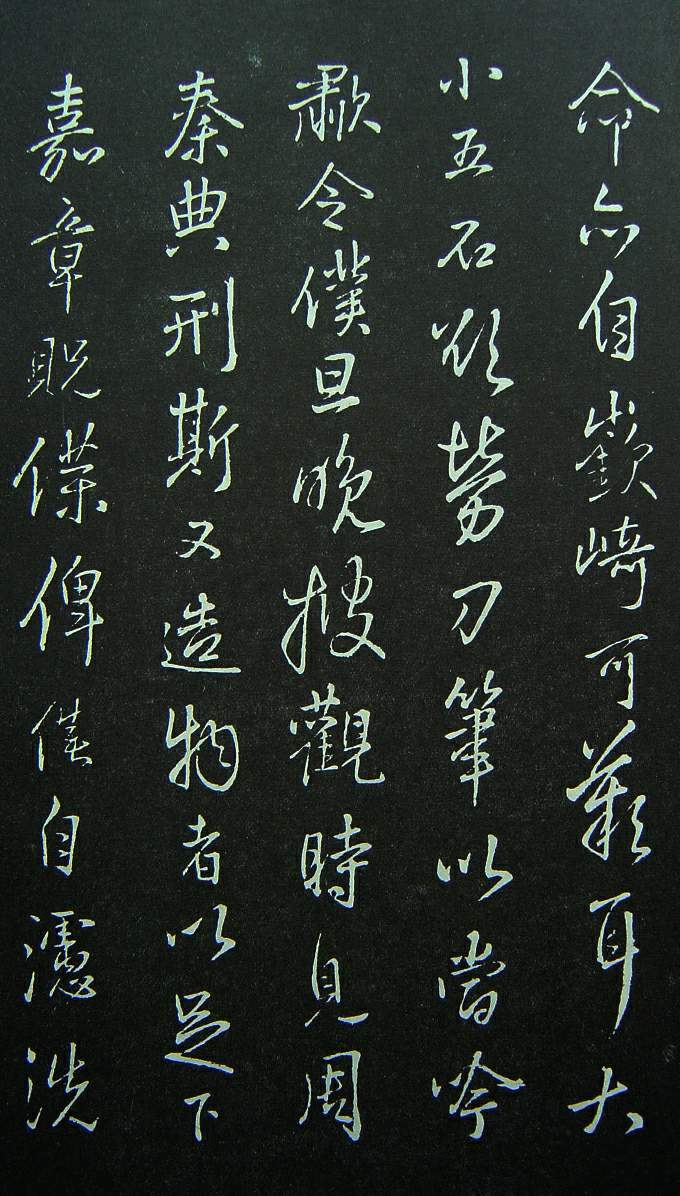 命亦自嶔崎可歎耳大
小五石欲勞刀筆以當吟
歗令僕旦晚披觀時見周
秦典刑斯又造物者以足下
嘉章貺僕俾僕自濾洗